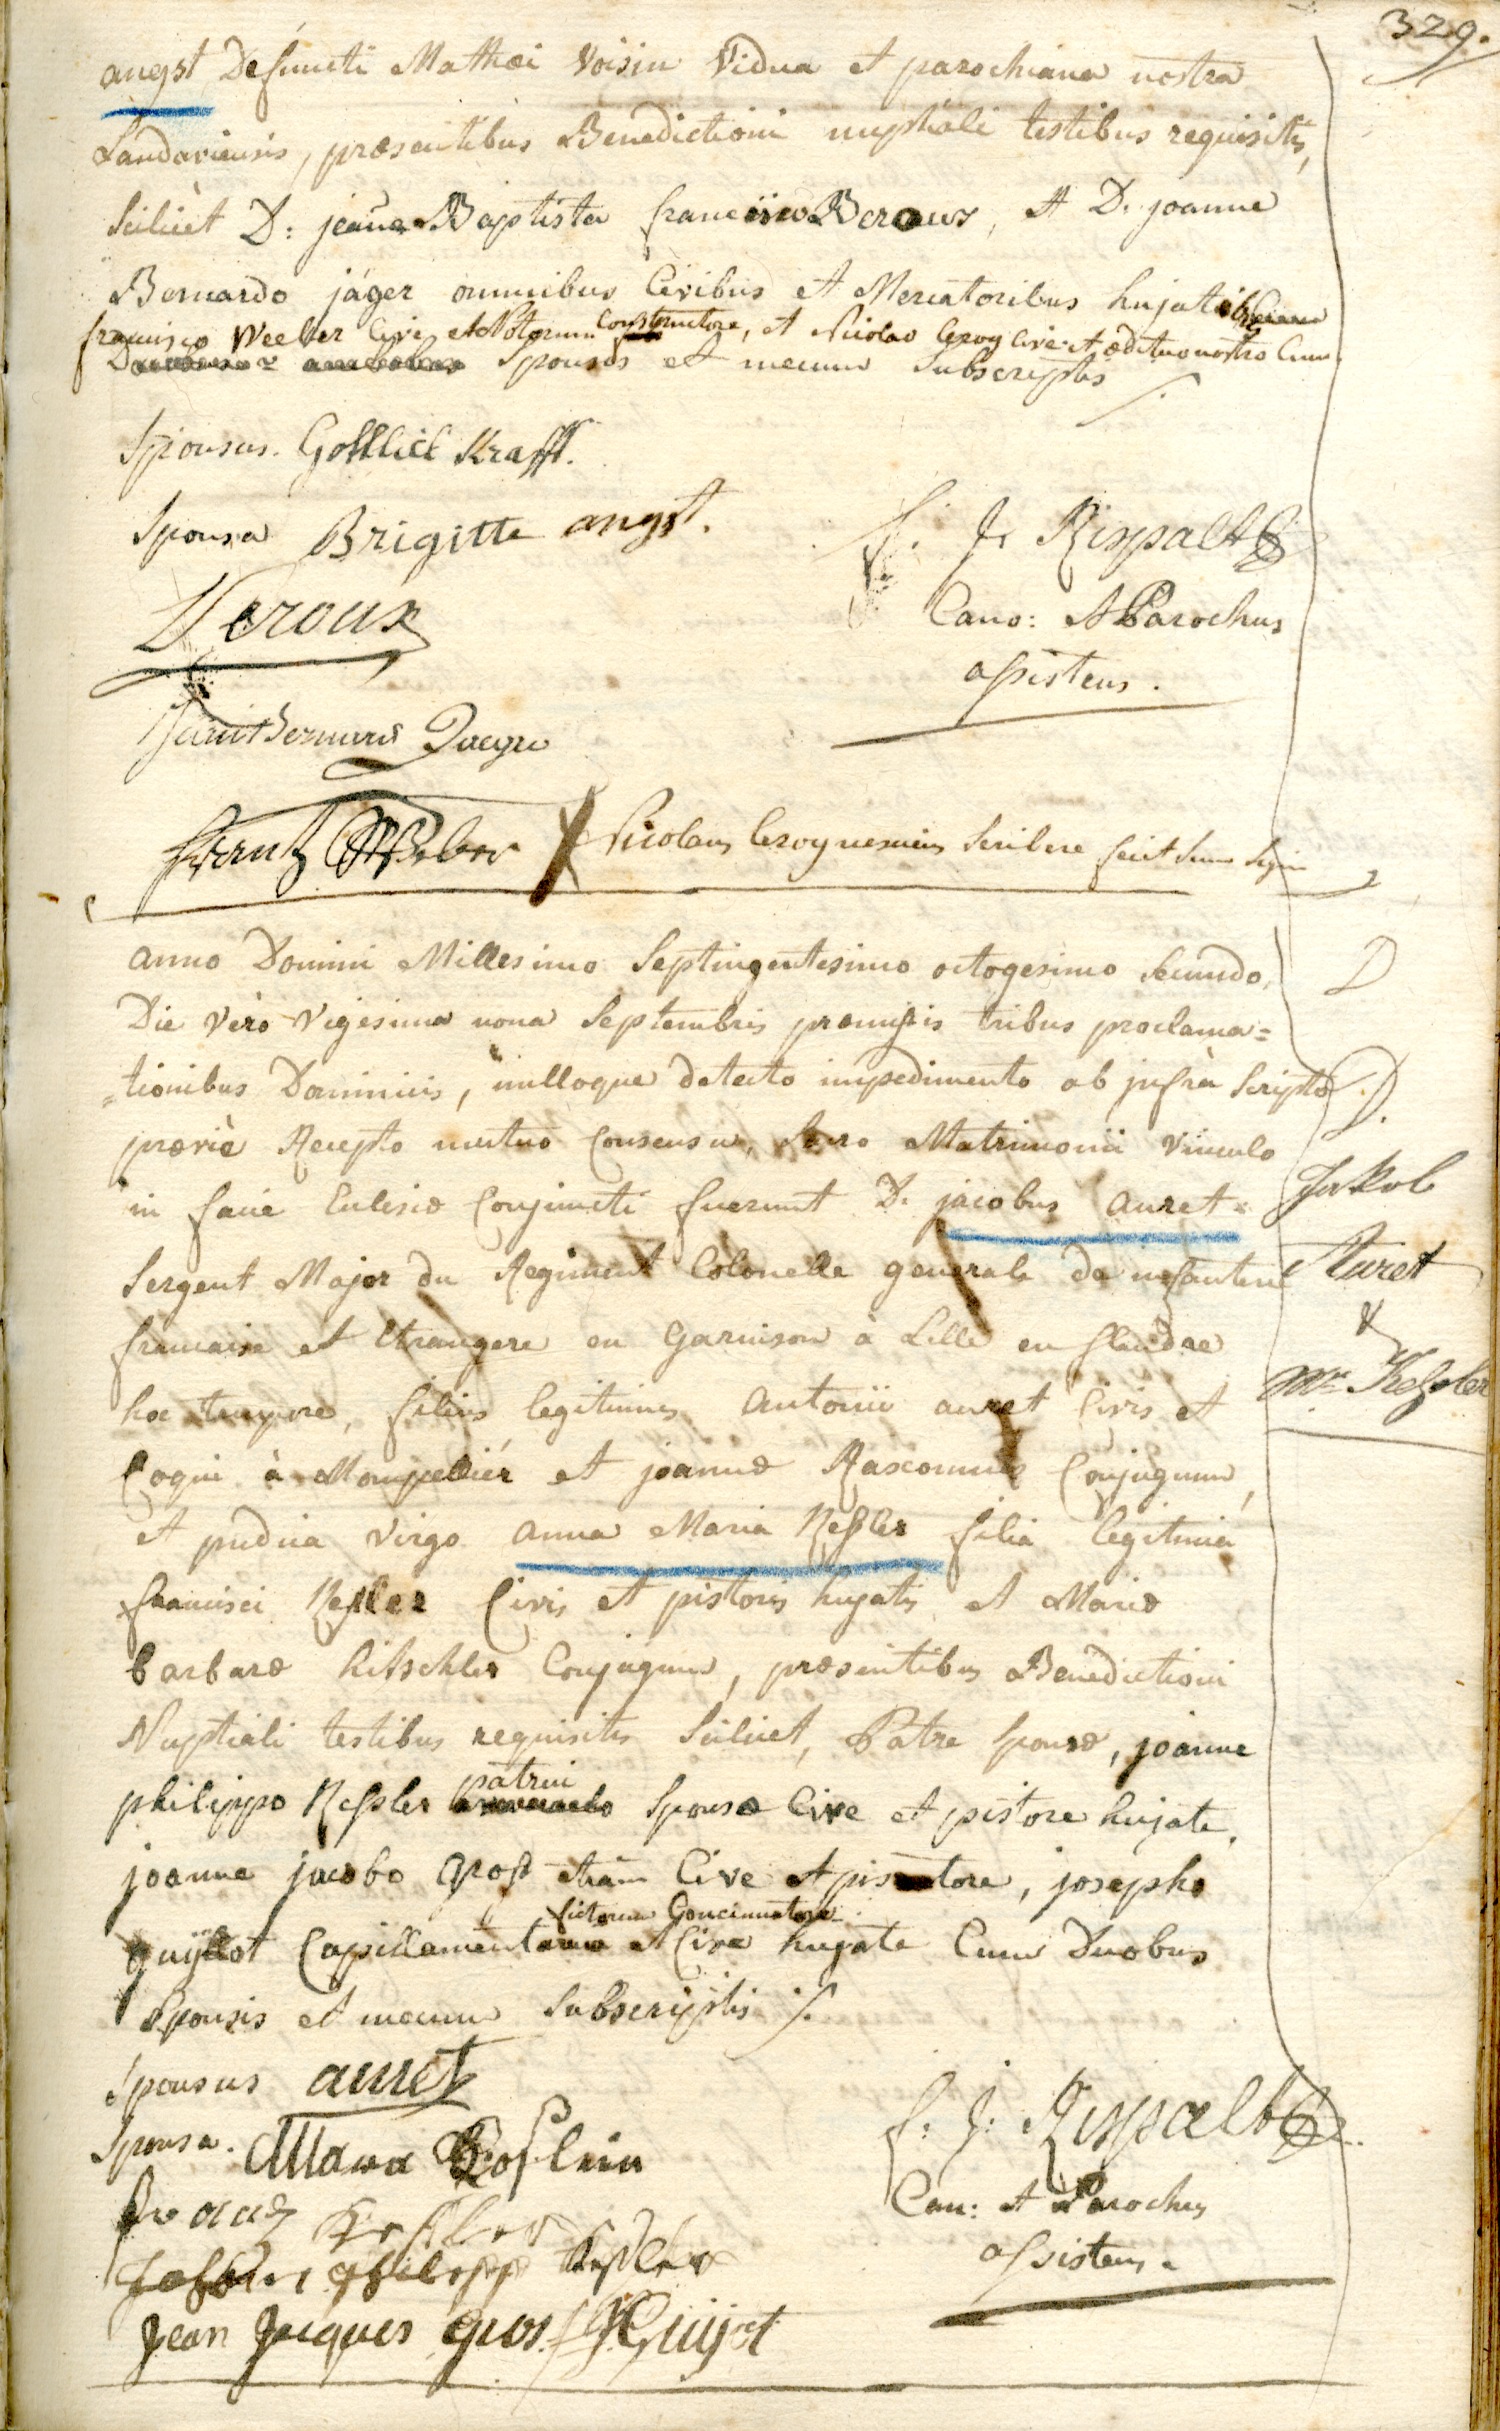 329.
angst Defuncti Mathæi Voisin Vidua et parochiana nostra
Landaviensis, præsentibus Benedictioni nuptiali testibus requisitis,
scilicèt D: jeanne Baptista francisco Beroux, et D. joanne
Bernardo jäger omnibus Civibus et Mercatoribus hujatibus
francisco Weeber Cive et Constructore, et Nicolao Leroy Cive et ædituo nostro Cum
Sponsis et mecum subscriptis
Sponsus. Gottlieb Krafft.
Sponsa Brigitte angst.
f. J. Rispalt
Cano: et Parochus
assistens.
Beroux
Jean Bernard Jaeger
Frantz Weber Nicolaus Leroy nesciens scribere fecit suum signum
anno Domini Millesimo Septingentesimo octogesimo secundo,
Die verò vigesima nona Septembris præmissis tribus proclama=
=tionibus Dominicis, nulloque detecto impedimento ab infrà scripto
præviè Recepto mutuo Consensu, Sacro Matrimonii vinculo
in facie Ecclesiæ Conjuncti fuerunt D. jacobus auret
Sergent Major du Regiment Colonelle generale de infanterie
francaise et Etrangere en Garnison à Lille en flandre
hoc tempore, filius legitimus Antonii auret Civis et
Coqui à Mompelliér et joannæ Rascomnes Conjugum,
et pudica virgo anna Maria Kessler filia legitima
francisci Kessler Civis et pistoris hujatis et Mariæ
barbaræ hitschler Conjugum, præsentibus Benedictioni
Nuptiali testibus requisitis scilicet, Patre sponsæ, joanne
philippo Kessler patrui Sponsæ Cive et pistore hujate,
joanne jacobo Gross etiam Cive et pistore, josepho
guijlot Capillamentorum fictorum Concinnatore et Cive hujate Cum Duobus
Sponsis et mecum subscriptis
D
D.
Jakob
Auret
&
Mr. Keßler
Sponsus auret
Sponsa. Maria Keßlerin
Frantz Keßler
Johann Philipp Keßler
Jean Jacques gros. Guijot
f. J. Rispalt
Can: et Parochus
assistens.